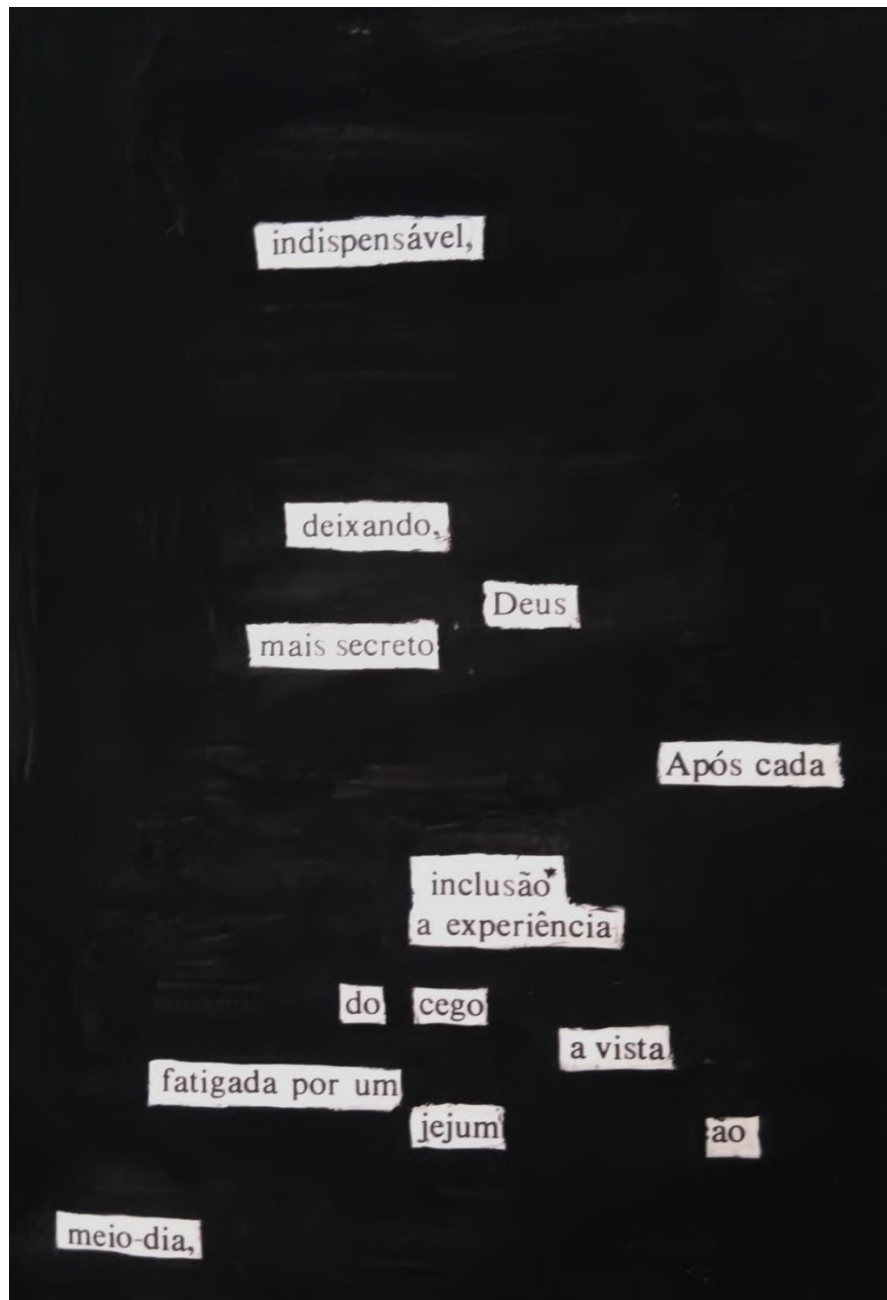 indispensável,
deixando,
Deus
mais secreto
Após cada
inclusão*
a experiência
do cego
a vista
fatigada por um
jejum
ão
meio-dia,